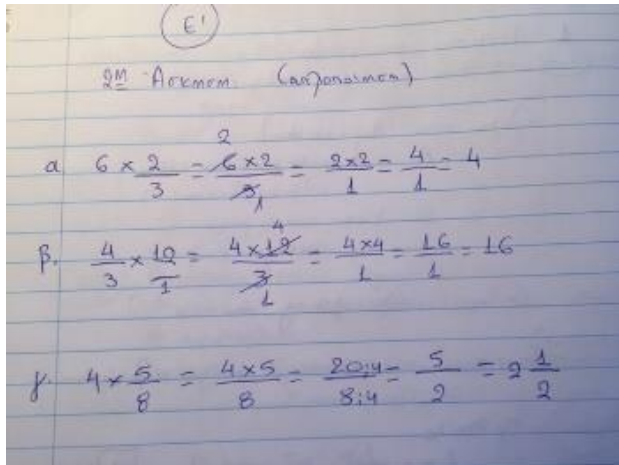 Ε'
2η Άσκηση
α 6 × 2/3 = 6×2/3 = 2×2/1 = 4/1 = 4
β. 4/3 × 12/1 = 4×12/3 = 4×4/1 = 16/1 = 16
γ. 4 × 5/8 = 4×5/8 = 20:4/8:4 = 5/2 = 2 1/2